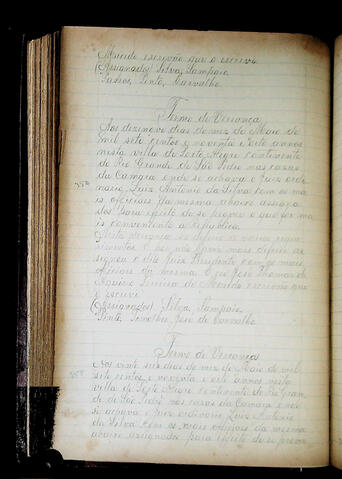 Macedo escrivão que o escrevi.
(Assignados) Silva, Sampaio,
Passos, Pinto, Carvalho.
Termo de Vereança
Aos dezenove dias do mez de Maio de
mil sete centos e noventa e oito annos
nesta villa de Porto Alegre continente
do Rio Grande de São Pedro nas casas
da Camara onde se achava o Juiz ordi
nario Luiz Antonio da Silva com os ma
is officiaes da mesma abaixo assigna
dos para effeito de se prover o que for ma
is conveniente a Republica.
Nesta vereança se
e por não haver mais
signou o dito Juiz Presidente com os mais
officiaes da mesma. E eu José Thomaz de
escrivão que
o escrevi
(Assignados) Silva, Sampaio,
Pinto, José de Carvalho
Termo de Vereança
Aos vinte seis dias do mez de Maio de mil
sete centos e noventa e oito annos nesta
villa de Porto Alegre continente do Rio Gran
de de São Pedro nas casas da Camara onde
se achava o Juiz ordinario Luiz Antonio
da Silva com os mais officiaes da mesma
abaixo assignados para effeito de se prover